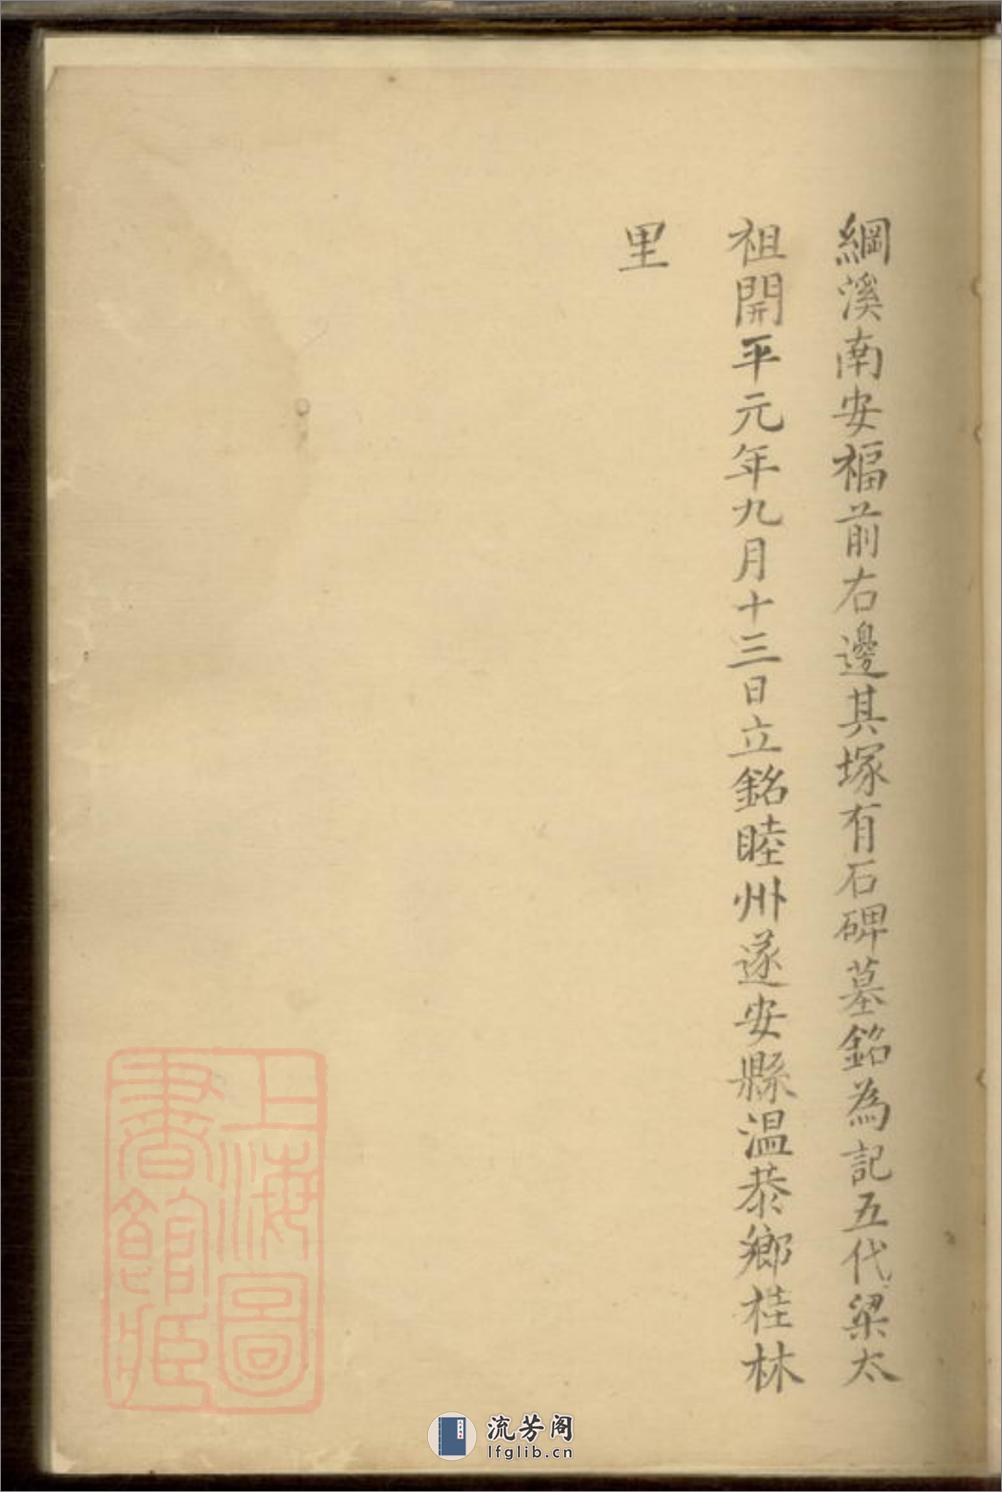 綱溪南安福前右邊其塚有石碑墓銘為記五代梁太
祖開平元年九月十三日立銘睦州遂安縣温恭鄉桂林
里
上海圖
書館藏
流芳阁
lfglib.cn